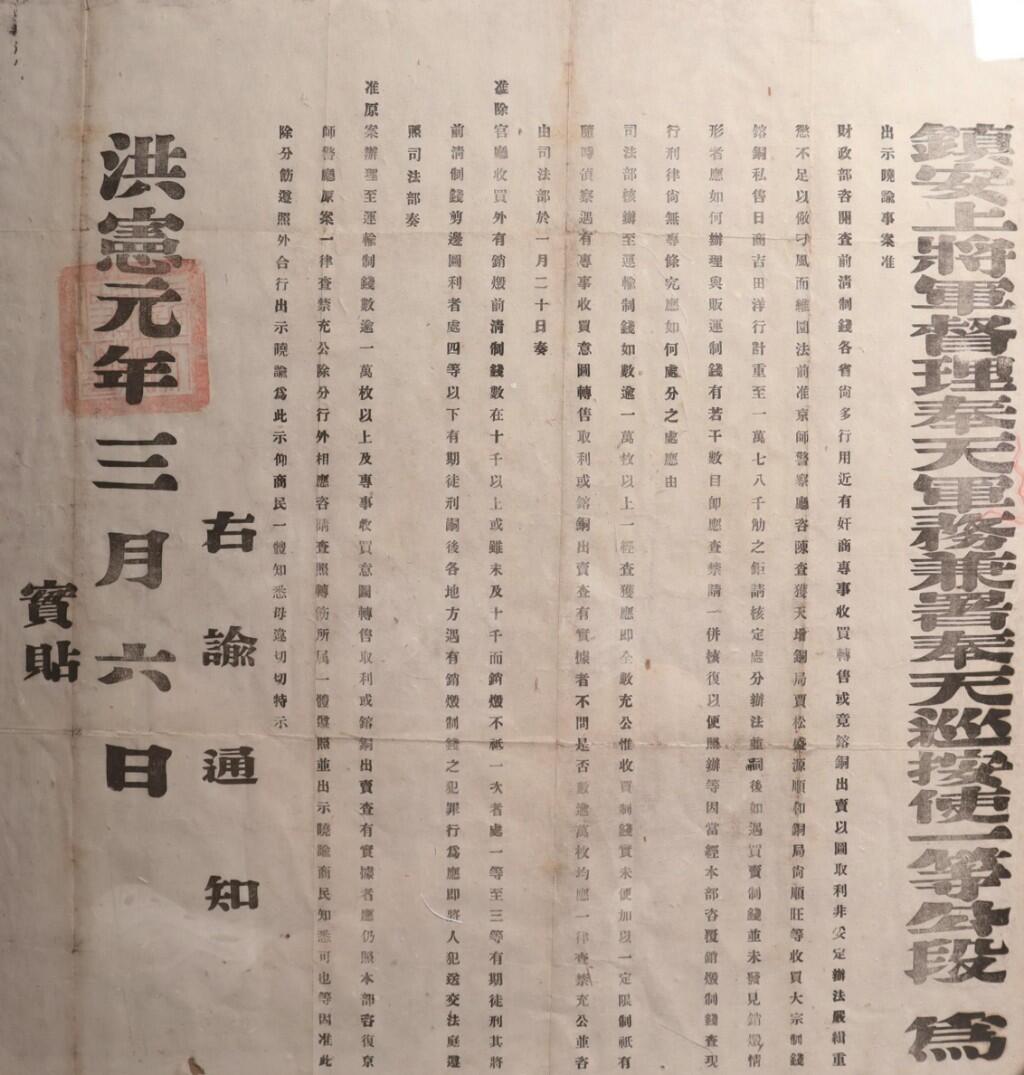 鎮安上將軍督理奉天軍務兼署奉天巡按使一等公段 爲
出示曉諭事案准
財政部咨開查前清制錢各省尚多行用近有奸商專事收買轉售或竟鎔銅出賣以圖取利非妥定辦法嚴緝重
懲不足以儆刁風而維圜法前准京師警察廳咨陳查獲天增銅局賈松盛源順和銅局尚順旺等收買大宗制錢
鎔銅私售日商吉田洋行計重至一萬七八千觔之鉅請核定處分辦法並嗣後如遇買賣制錢並未發見銷燬情
形者應如何辦理與販運制錢有若干數目卽應查禁請一併核復以便照辦等因當經本部咨覆銷燬制錢查現
行刑律尚無專條究應如何處分之處應由
司法部核辦至運輸制錢如數逾一萬枚以上一經查獲應卽全數充公惟收買制錢實未便加以一定限制祇有
隨時偵察遇有專事收買意圖轉售取利或鎔銅出賣查有實據者不問是否數逾萬枚均應一律查禁充公並咨
由司法部於一月二十日奏
准除官廳收買外有銷燬前清制錢數在十千以上或雖未及十千而銷燬不祇一次者處一等至三等有期徒刑其將
前清制錢剪邊圖利者處四等以下有期徒刑嗣後各地方遇有銷燬制錢之犯罪行爲應卽將人犯送交法庭遵
照司法部奏
准原案辦理至運輸制錢數逾一萬枚以上及專事收買意圖轉售取利或鎔銅出賣查有實據者應仍照本部咨復京
師警廳原案一律查禁充公除分行外相應咨請查照轉飭所屬一體遵照並出示曉諭商民知悉可也等因准此
除分飭遵照外合行出示曉諭爲此示仰商民一體知悉毋違切切特示
右諭通知
洪憲元年三月六日
實貼